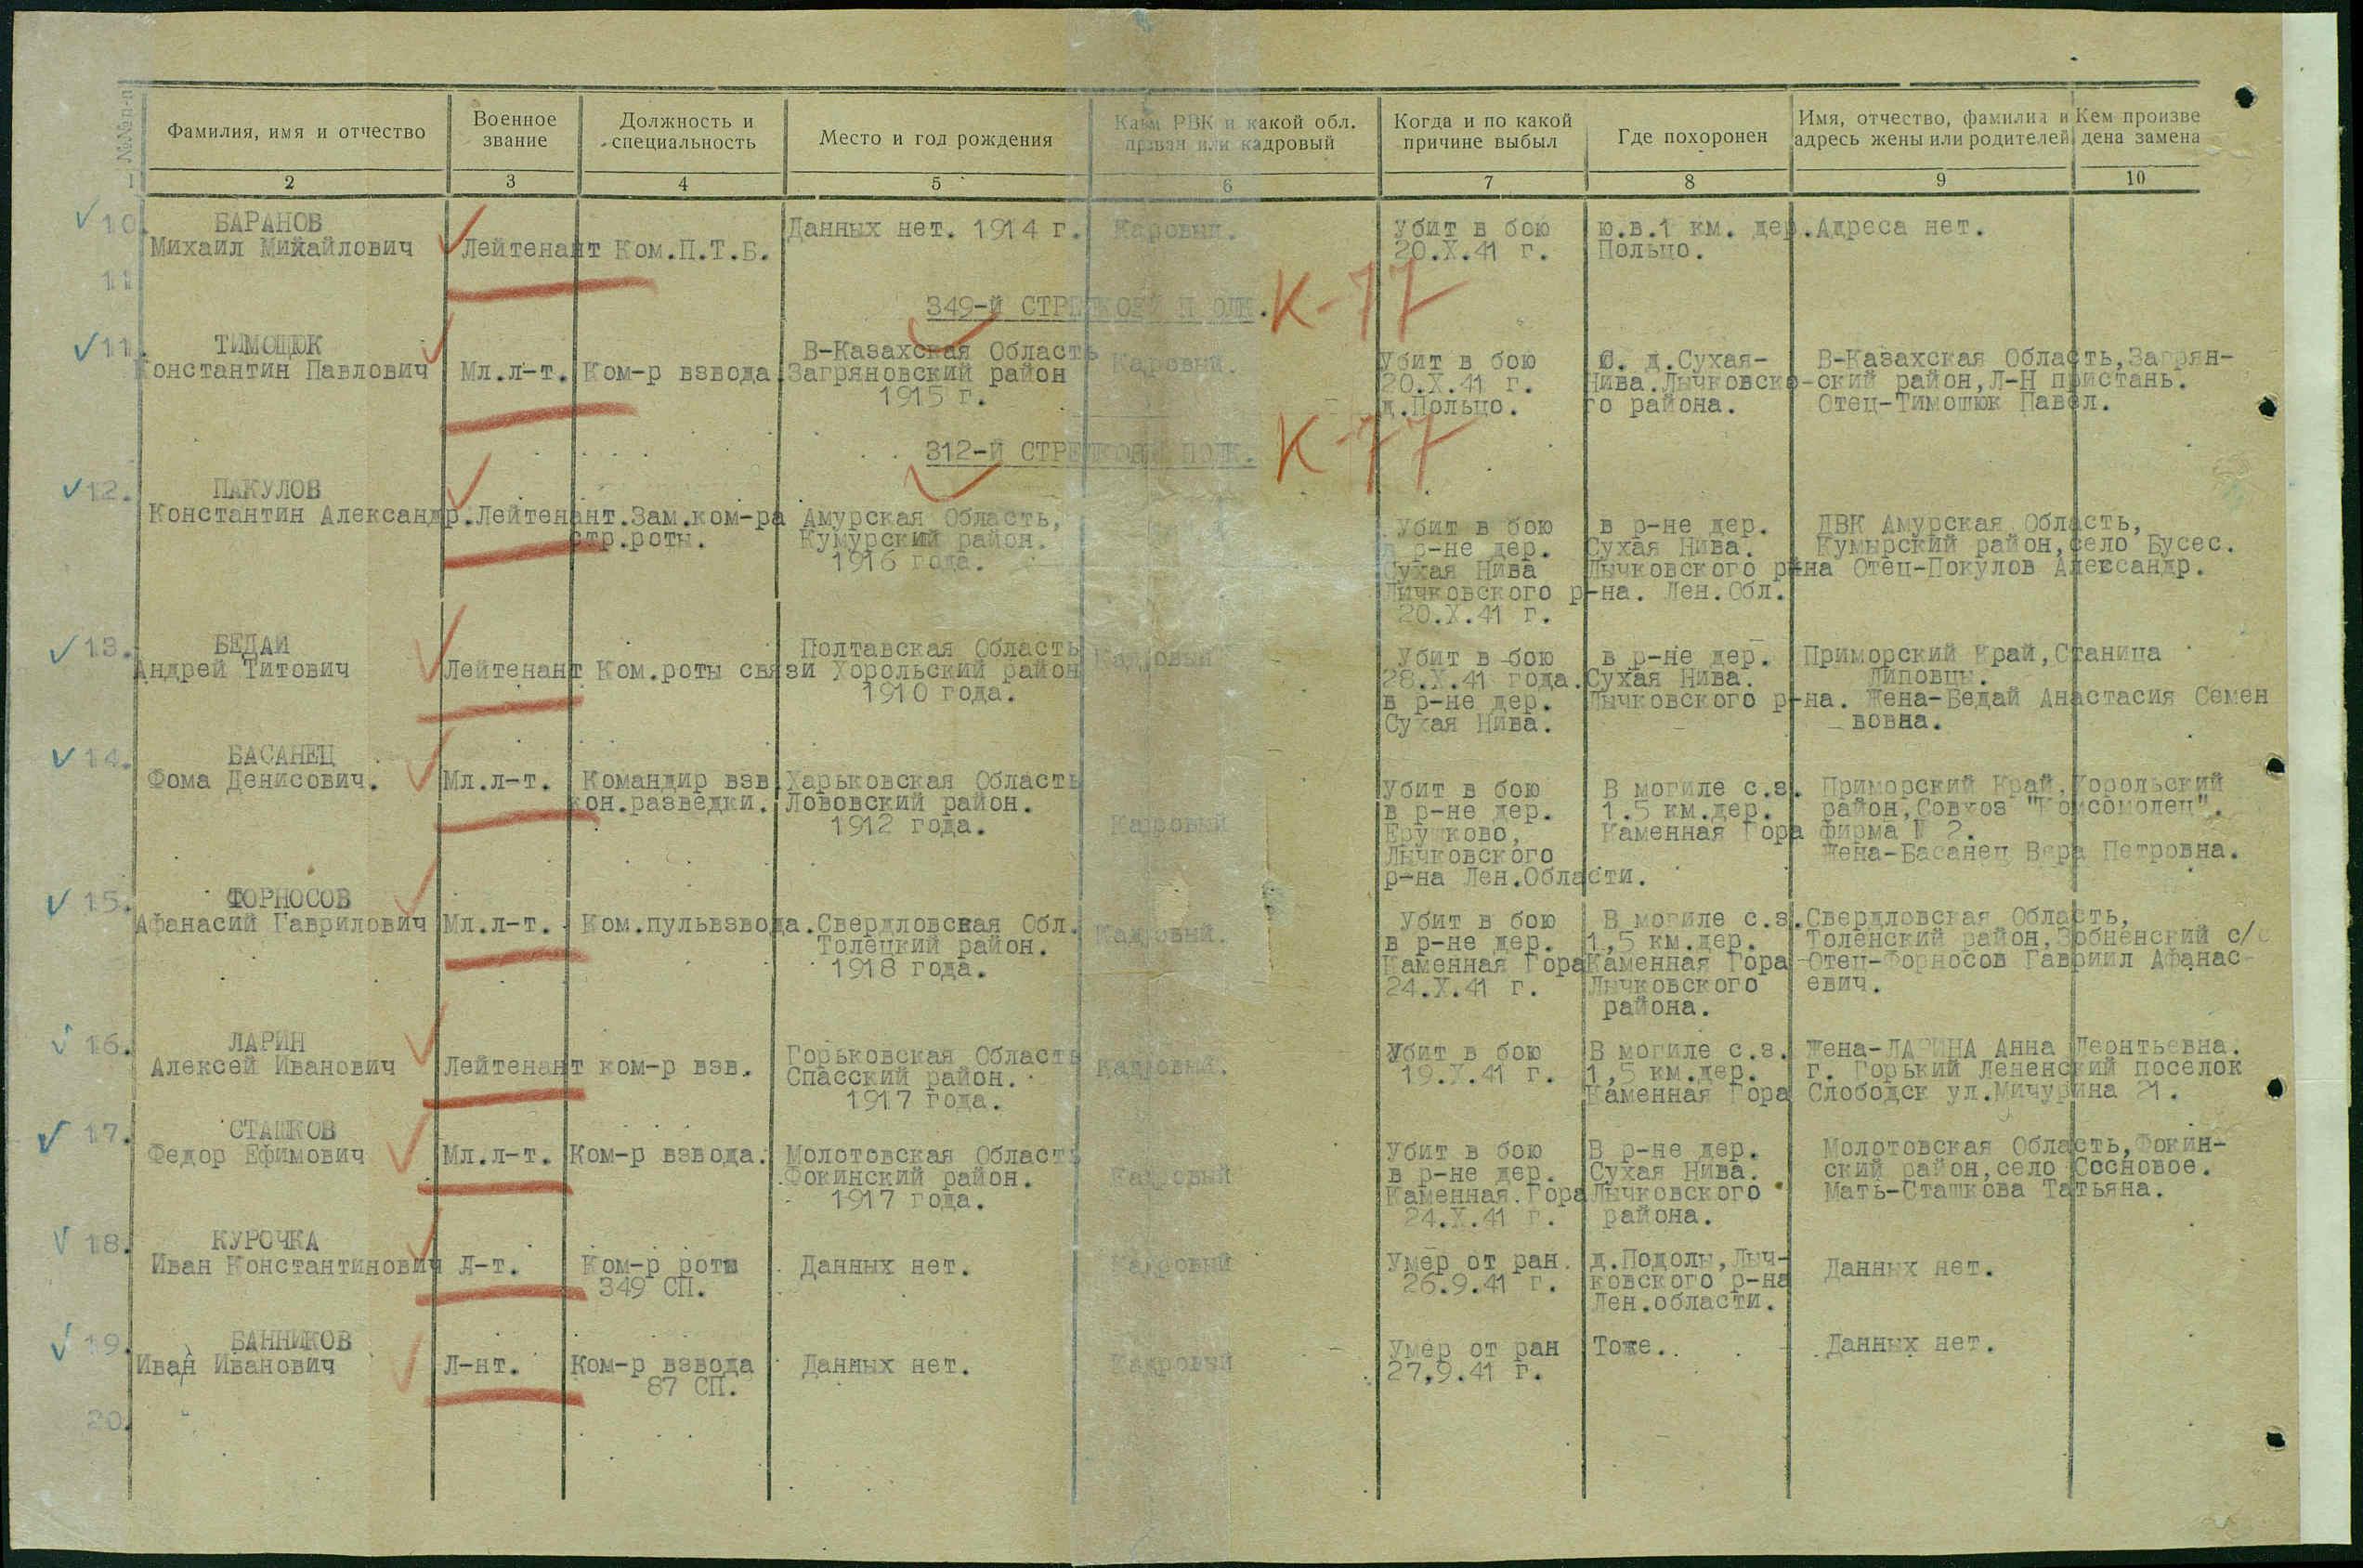 №№ п-п
Фамилия, имя и отчество
Военное
звание
Должность и
специальность
Место и год рождения
Каким РВК и какой обл.
призван или кадровый
Когда и по какой
причине выбыл
Где похоронен
Имя, отчество, фамилия и
адресь жены или родителей
Кем произве
дена замена
1 2 3 4 5 6 7 8 9 10
10. БАРАНОВ
Михаил Михайлович
Лейтенант
Ком.П.Т.Б.
Данных нет. 1914 г.
Каровый.
Убит в бою
20.X.41 г.
ю.в.1 км. дер.
Польцо.
Адреса нет.
11
349-й СТРЕЛКОВЫЙ П ОЛК. К-77
11. ТИМОЩЮК
Константин Павлович
Мл.л-т.
Ком-р взвода.
В-Казахская Область
Загряновский район
1915 г.
Кадровый.
Убит в бою
20.X.41 г.
д.Польцо.
С. д.Сухая-
Нива.Лычковско-
го района.
В-Казахская Область,Загрян-
ский район,Л-Н пристань.
Отец-Тимошюк Павел.
312-й СТРЕЛКОВЫЙ ПОЛК. К-77
12. ПАКУЛОВ
Константин Александр.
Лейтенант.
Зам.ком-ра
стр.роты.
Амурская Область,
Кумурский район.
1916 года.
Убит в бою
в р-не дер.
Сухая Нива
Лычковского р-на. Лен.Обл.
20.X.41 г.
в р-не дер.
Сухая Нива.
Лычковского р-на
ДВК Амурская Область,
Кумырский район,село Бусес.
Отец-Покулов Александр.
13. БЕДАЙ
Андрей Титович
Лейтенант
Ком.роты связи
Полтавская Область
Хорольский район
1910 года.
Кадровый
Убит в бою
28.X.41 года.
в р-не дер.
Сухая Нива.
в р-не дер.
Сухая Нива.
Лычковского р-на.
Приморский Край,Станица
Липовцы.
Жена-Бедай Анастасия Семен
вовна.
14. БАСАНЕЦ
Фома Денисович.
Мл.л-т.
Командир взв
кон.разведки.
Харьковская Область
Лововский район.
1912 года.
Кадровый
Убит в бою
в р-не дер.
Ерушково,
Лычковского
р-на Лен.Области.
В могиле с.з.
1.5 км.дер.
Каменная Гора
Приморский Край,Хорольский
район,Совхоз "Комсомолец".
фирма № 2.
Жена-Басанец Вера Петровна.
15. ФОРНОСОВ
Афанасий Гаврилович
Мл.л-т.
Ком.пульвзвода.
Свердловская Обл.
Толецкий район.
1918 года.
Кадровый.
Убит в бою
в р-не дер.
Каменная Гора
24.X.41 г.
В могиле с.з.
1,5 км.дер.
Каменная Гора
Лычковского
района.
Свердловская Область,
Толенский район,Зобненский с/с
Отец-Форносов Гавриил Афанас-
евич.
16. ЛАРИН
Алексей Иванович
Лейтенант
ком-р взв.
Горьковская Область
Спасский район.
1917 года.
Кадровый.
Убит в бою
19.X.41 г.
В могиле с.з.
1,5 км.дер.
Каменная Гора
Жена-ЛАРИНА Анна Леонтьевна.
г. Горький Лененский поселок
Слободск ул.Мичурина 21.
17. СТАШКОВ
Федор Ефимович
Мл.л-т.
Ком-р взвода.
Молотовская Область
Фокинский район.
1917 года.
Кадровый
Убит в бою
в р-не дер.
Каменная.Гора
24.X.41 г.
В р-не дер.
Сухая Нива.
Лычковского
района.
Молотовская Область,Фокин-
ский район,село Сосновое.
Мать-Сташкова Татьяна.
18. КУРОЧКА
Иван Константинович
Л-т.
Ком-р роты
349 СП.
Данных нет.
Кадровый
Умер от ран.
26.9.41 г.
д.Подолы,Лыч-
ковского р-на
Лен.области.
Данных нет.
19. БАННИКОВ
Иван Иванович
Л-нт.
Ком-р взвода
87 СП.
Данных нет.
Кадровый
Умер от ран
27.9.41 г.
Тоже.
Данных нет.
20.